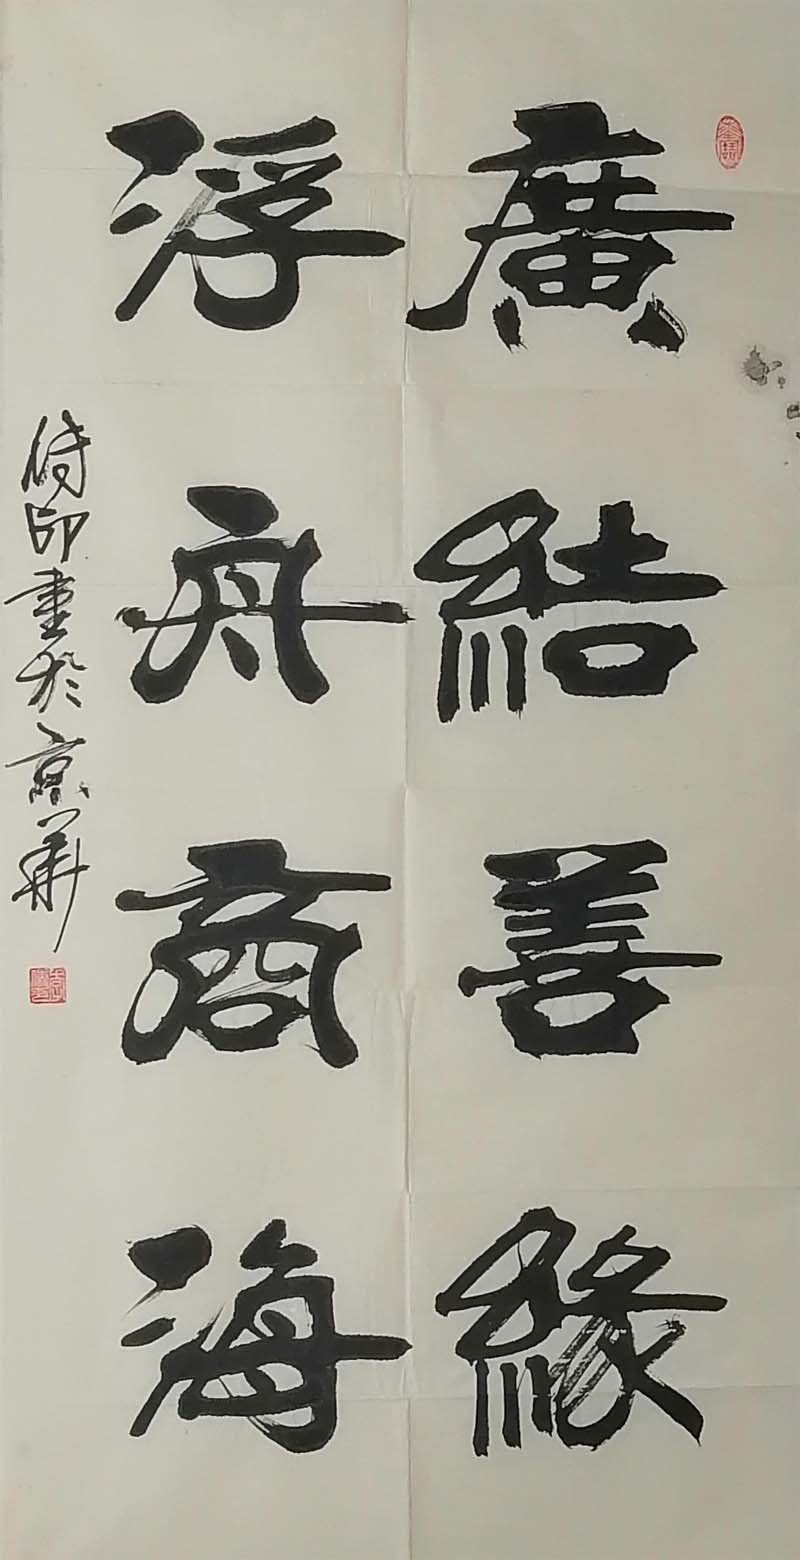 廣結善緣
浮舟商海
書於京華